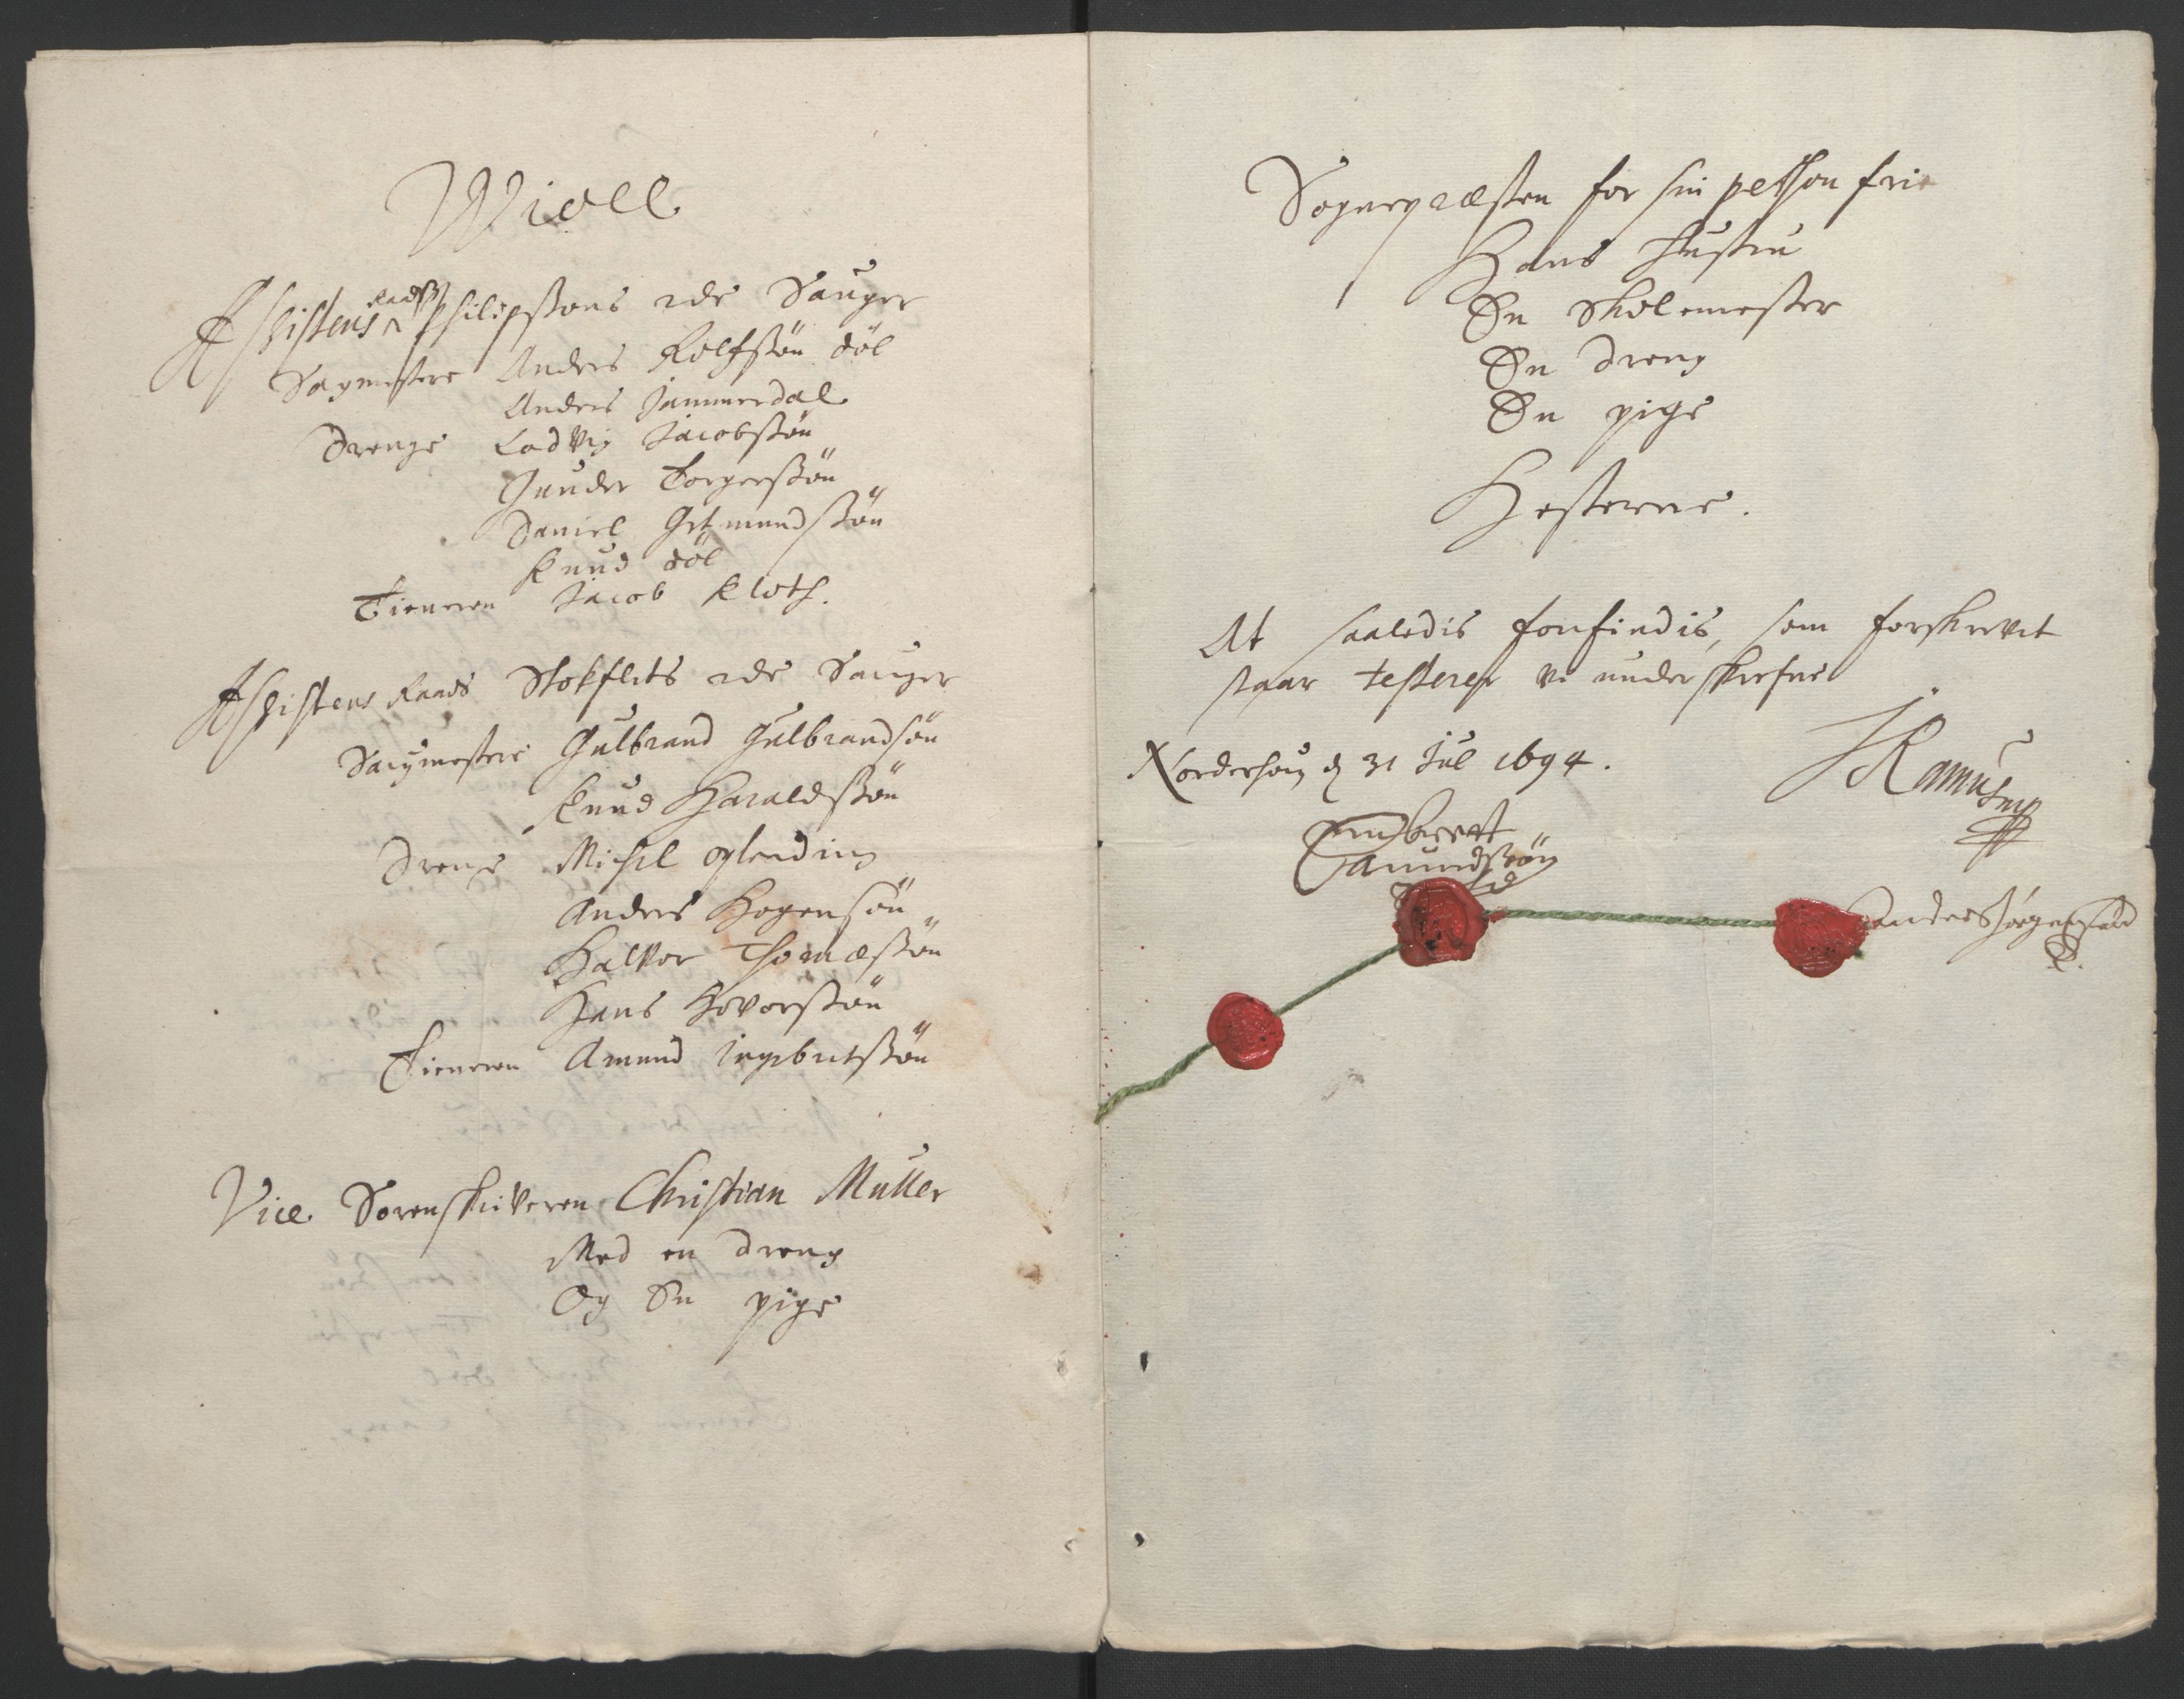 Wiell
Assistens Raads Philipssøns 2de Sauger
Saugmestere Anders Rolfssøn döl
Anders Jammerdal
Drenge Ladvig Jacobssøn
Gunder Torgerssøn
Daniel Gutmundssøn
Knud döl
Tieneren Jacob Kloth.
Assistens Raads Stokflets 2de Sauger
Saugmestere Gulbrand Gulbrandsøn
Knud Haraldssøn
Drenge Michel opleding
Anders Hogensøn
Halvor Thomæssøn
Hans Hovorssøn
Tieneren Amund Ingebretssøn
Vice Sorenskriveren Christian Muller
Med en dreng
Og En pige
Sognepræsten for sin person fri
Hans Hustru
En Skolemester
En dreng
En pige
Hesterne.
At saaledis forfindis, som forskrevet
staar testerer vi underskrefne
Norderhoug d 31 Jul 1694.
JRamus
Embret
Amundssøn
Anders Jørgensen